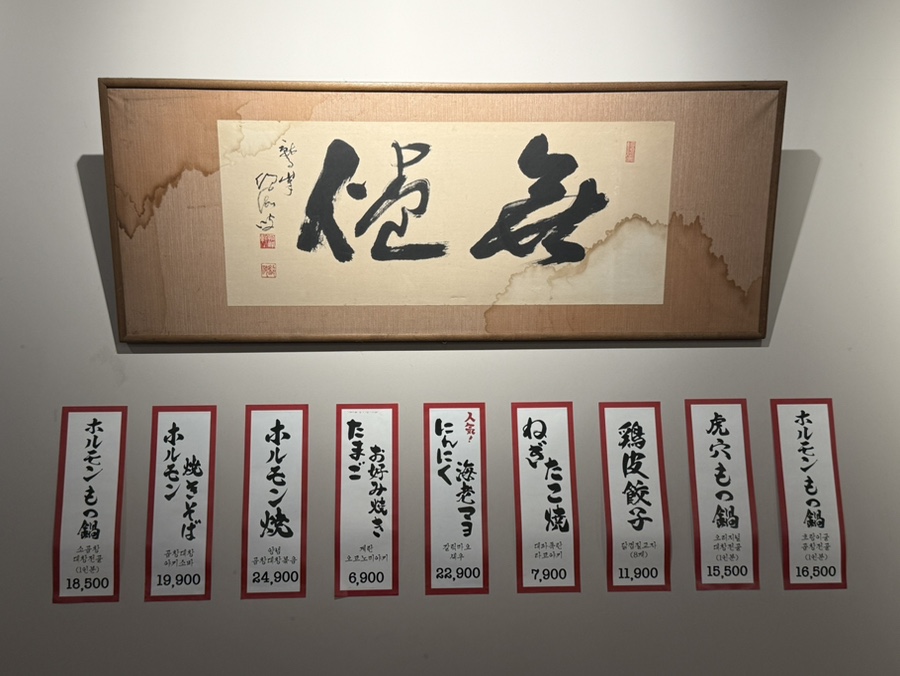 無
ホルモンもつ鍋
소곱창
대창전골
(1인분)
18,500
ホルモン
焼きそば
곱창대창
야키소바
19,900
ホルモン焼
양념
곱창대창볶음
24,900
たまご
お好み焼き
계란
오코노미야키
6,900
人気!
にんにく
海老マヨ
갈릭마요
새우
22,900
ねぎ
たこ焼
대파폭탄
타코야키
7,900
鶏皮餃子
닭껍질교자
11,900
虎穴もつ鍋
오리지널
대창전골
(1인분)
15,500
ホルモンもつ鍋
호랑이굴
곱창전골
(1인분)
16,500